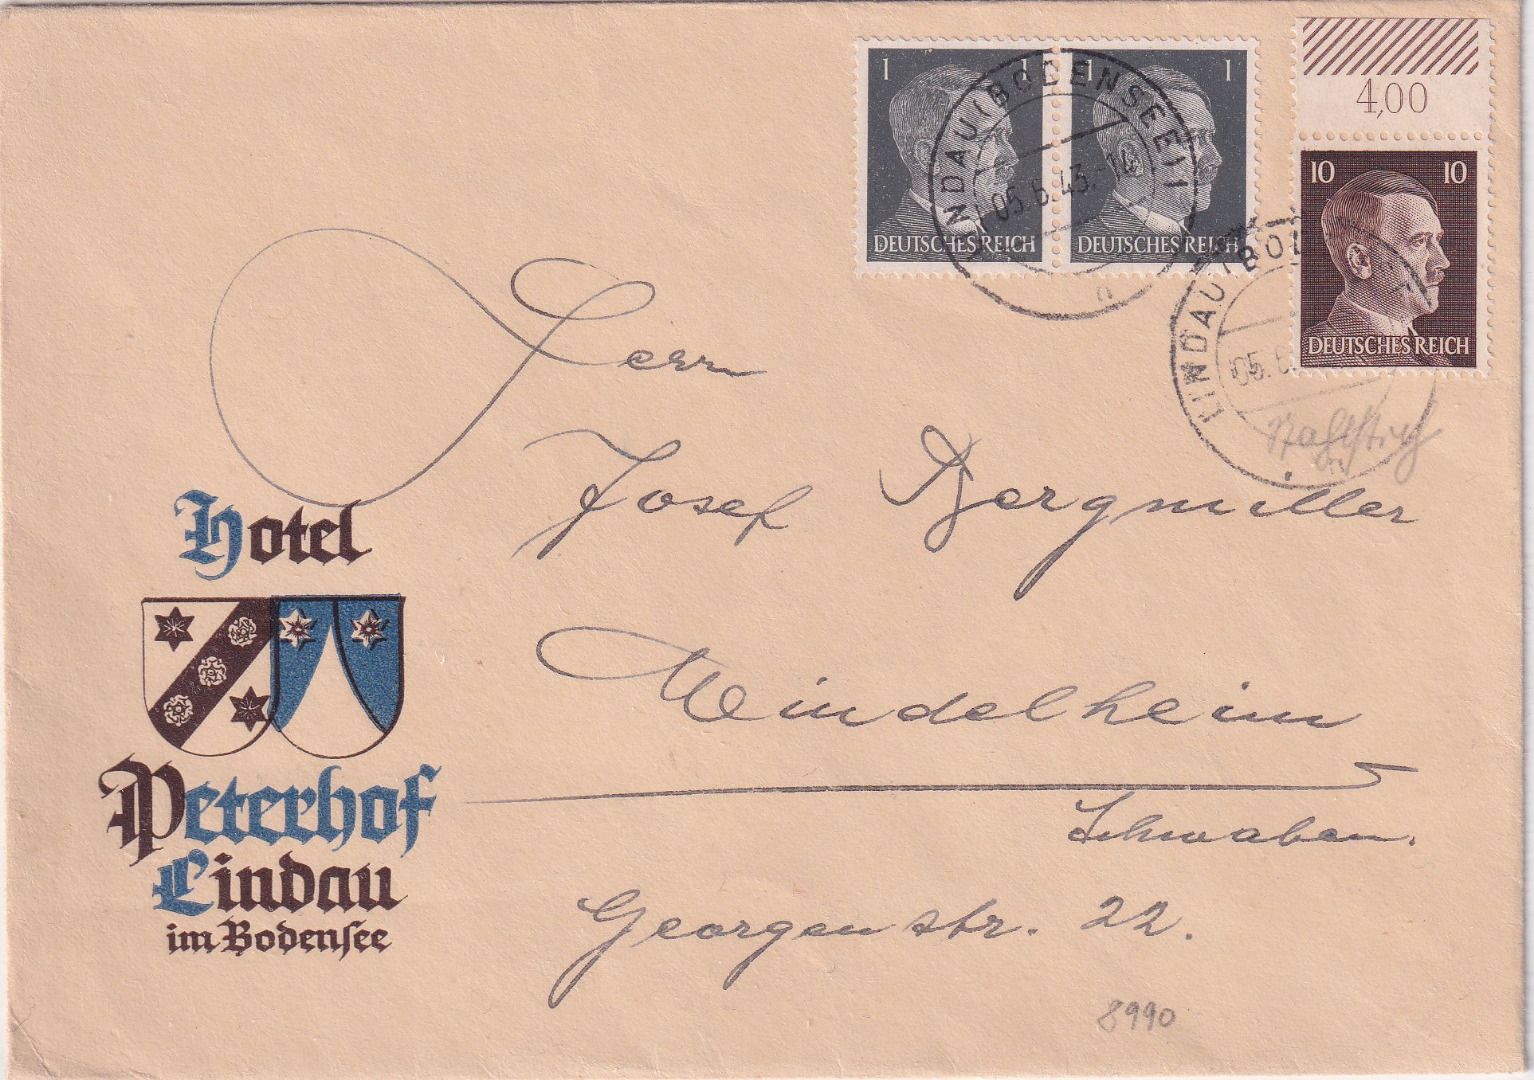 1 1
DEUTSCHES REICH
1 1
DEUTSCHES REICH
4,00
10 10
DEUTSCHES REICH
LINDAU (BODENSEE) 1
05.6.43.-14
n
LINDAU (BOD
05.6.
Herrn
Josef Bergmiller
Mindelheim
Schwaben.
Georgenstr. 22.
8990
Hotel
Peterhof
Lindau
im Bodensee